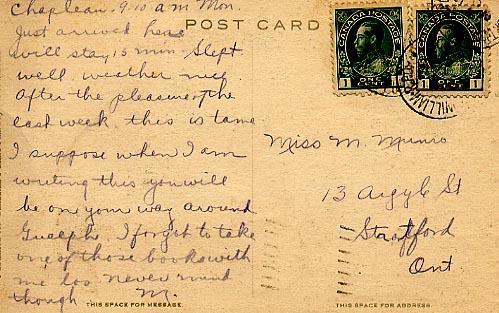 Chapleau. 9.10 a.m. Mon.
POST CARD
Just arrived here
will stay 15 min. Slept
well, weather nice
After the pleasure of the
last week this is tame
I suppose when I am
writing this you will
be on your way around
Guelph. I forgot to take
one of those books with
me too. never mind
though M.
THIS SPACE FOR MESSAGE.
CANADA POSTAGE
1 ONE CENT 1
CANADA POSTAGE
1 ONE CENT 1
WILLIAM
Miss M. Munro
13 Argyle St
Stratford
Ont
THIS SPACE FOR ADDRESS.